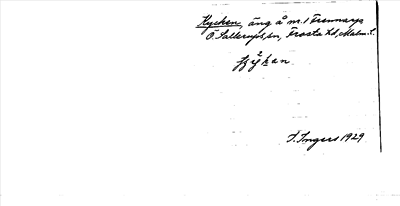 Hycken, äng å nr. 1 Fremmarps
Ö. Sallerups sn, Frosta hd, Malm. l.
hy̆kan
I. Ingers 1929